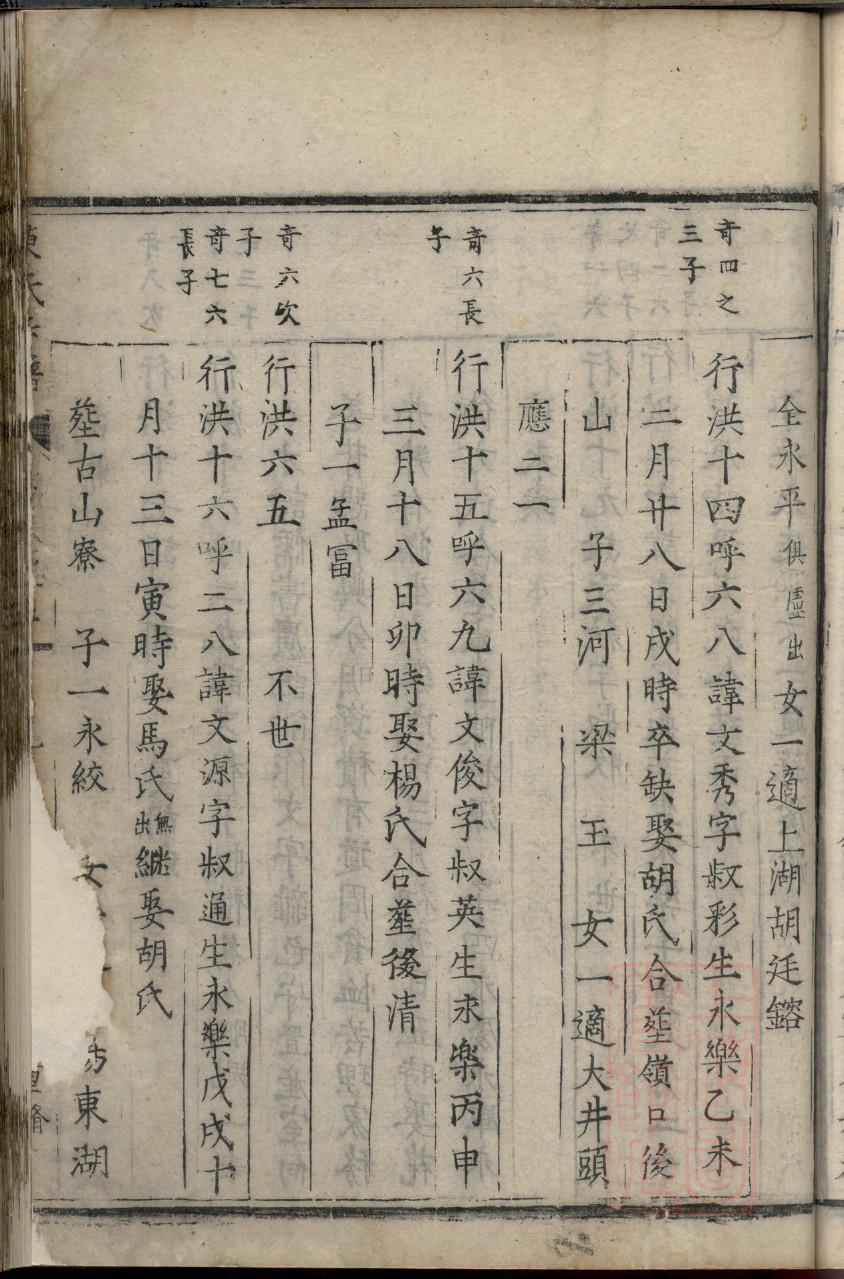 全永平俱盧出女一適上湖胡廷鎔
竒四之
三子
行洪十四呼六八諱文秀字叔彩生永樂乙未
二月廿八日戌時卒缺娶胡氏合塟嶺口後
山 子三河 梁 玉 女一適大井頭
應二一
竒六長
子
行洪十五呼六九諱文俊字叔英生永樂丙申
三月十八日卯時娶楊氏合塟後清
子一孟冨
竒六次
子
行洪六五 不世
竒七六
長子
行洪十六呼二八諱文源字叔通生永樂戊戌十
月十三日寅時娶馬氏無出繼娶胡氏
塟古山寮 子一永絞 女 東湖